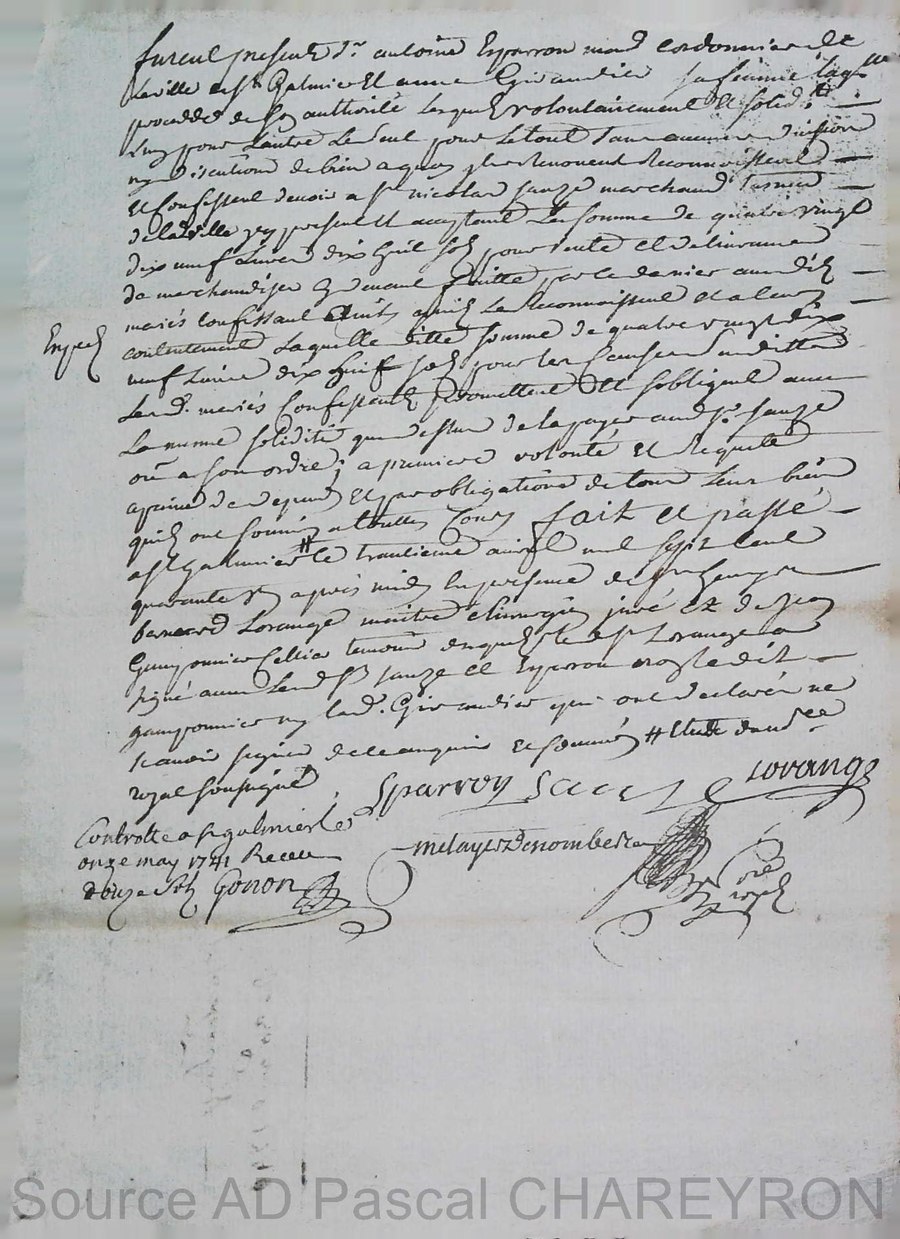 furent presents Sr antoine Esparron md cordonnier de
la ville de st Galmier et anne Giraudier sa femme laqlle
procedde de son authorité lesquels volontairement et solidt
l'un pour l'autre le seul pour le tout sans aucune division
ny discution de bien a quoy ils renoncent reconnoissent
et confessent devoir a sr nicolas sauze marchand
de lad ville icy present et acceptant la somme de quatre vingt
dix neuf livres dix huit sols pour vente et delivrance
de marchandises cy devant faitte par le dernier ausdits
mariés confessant ainsy qu'ils le reconnoissent et a leur
contentement laquelle ditte somme de quatre vingt dix
neuf livres dix huit sols pour les causes susdittes
lesd. mariés confessants promettent et s'obligent avec
la meme solidité que dessus de la payer aud sr sauze
ou a son ordre, a premiere volonté et requete
a peine de depens et par obligations de tous leurs biens
qu'ils ont soumis a touttes cours fait et passé
a st galmier # le trantieme avril mil sept cent
quarante un apres midy en presence de
bernard Lorange maitre chirurgien juré et de jean
Gamponnier cellier temoins desquels led sr Lorange a
signé avec lesd srs sauze et Esparron non led
gamponnier ny lad. Giraudier qui ont declaré ne
scavoir signer de ce enquis et sommés # etude du nore
royal soussigné
Exped
Sparron Lorange
Controllé a st galmier le
onze may 1741 Receu
douze sols Gonon